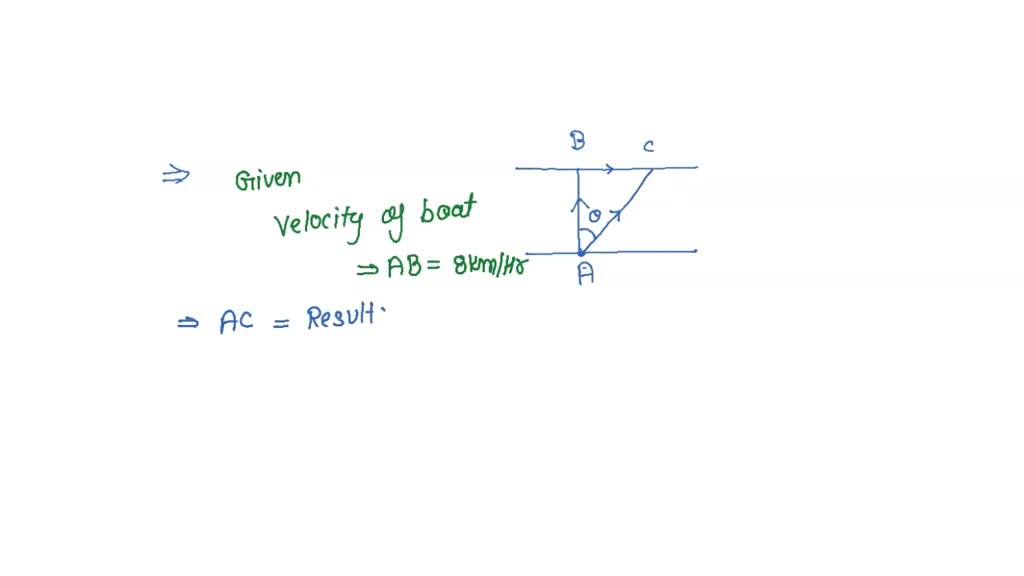 B C
⇒ Given
Velocity of boat
θ
⇒ AB = 8km/Hr
A
⇒ AC = Result.